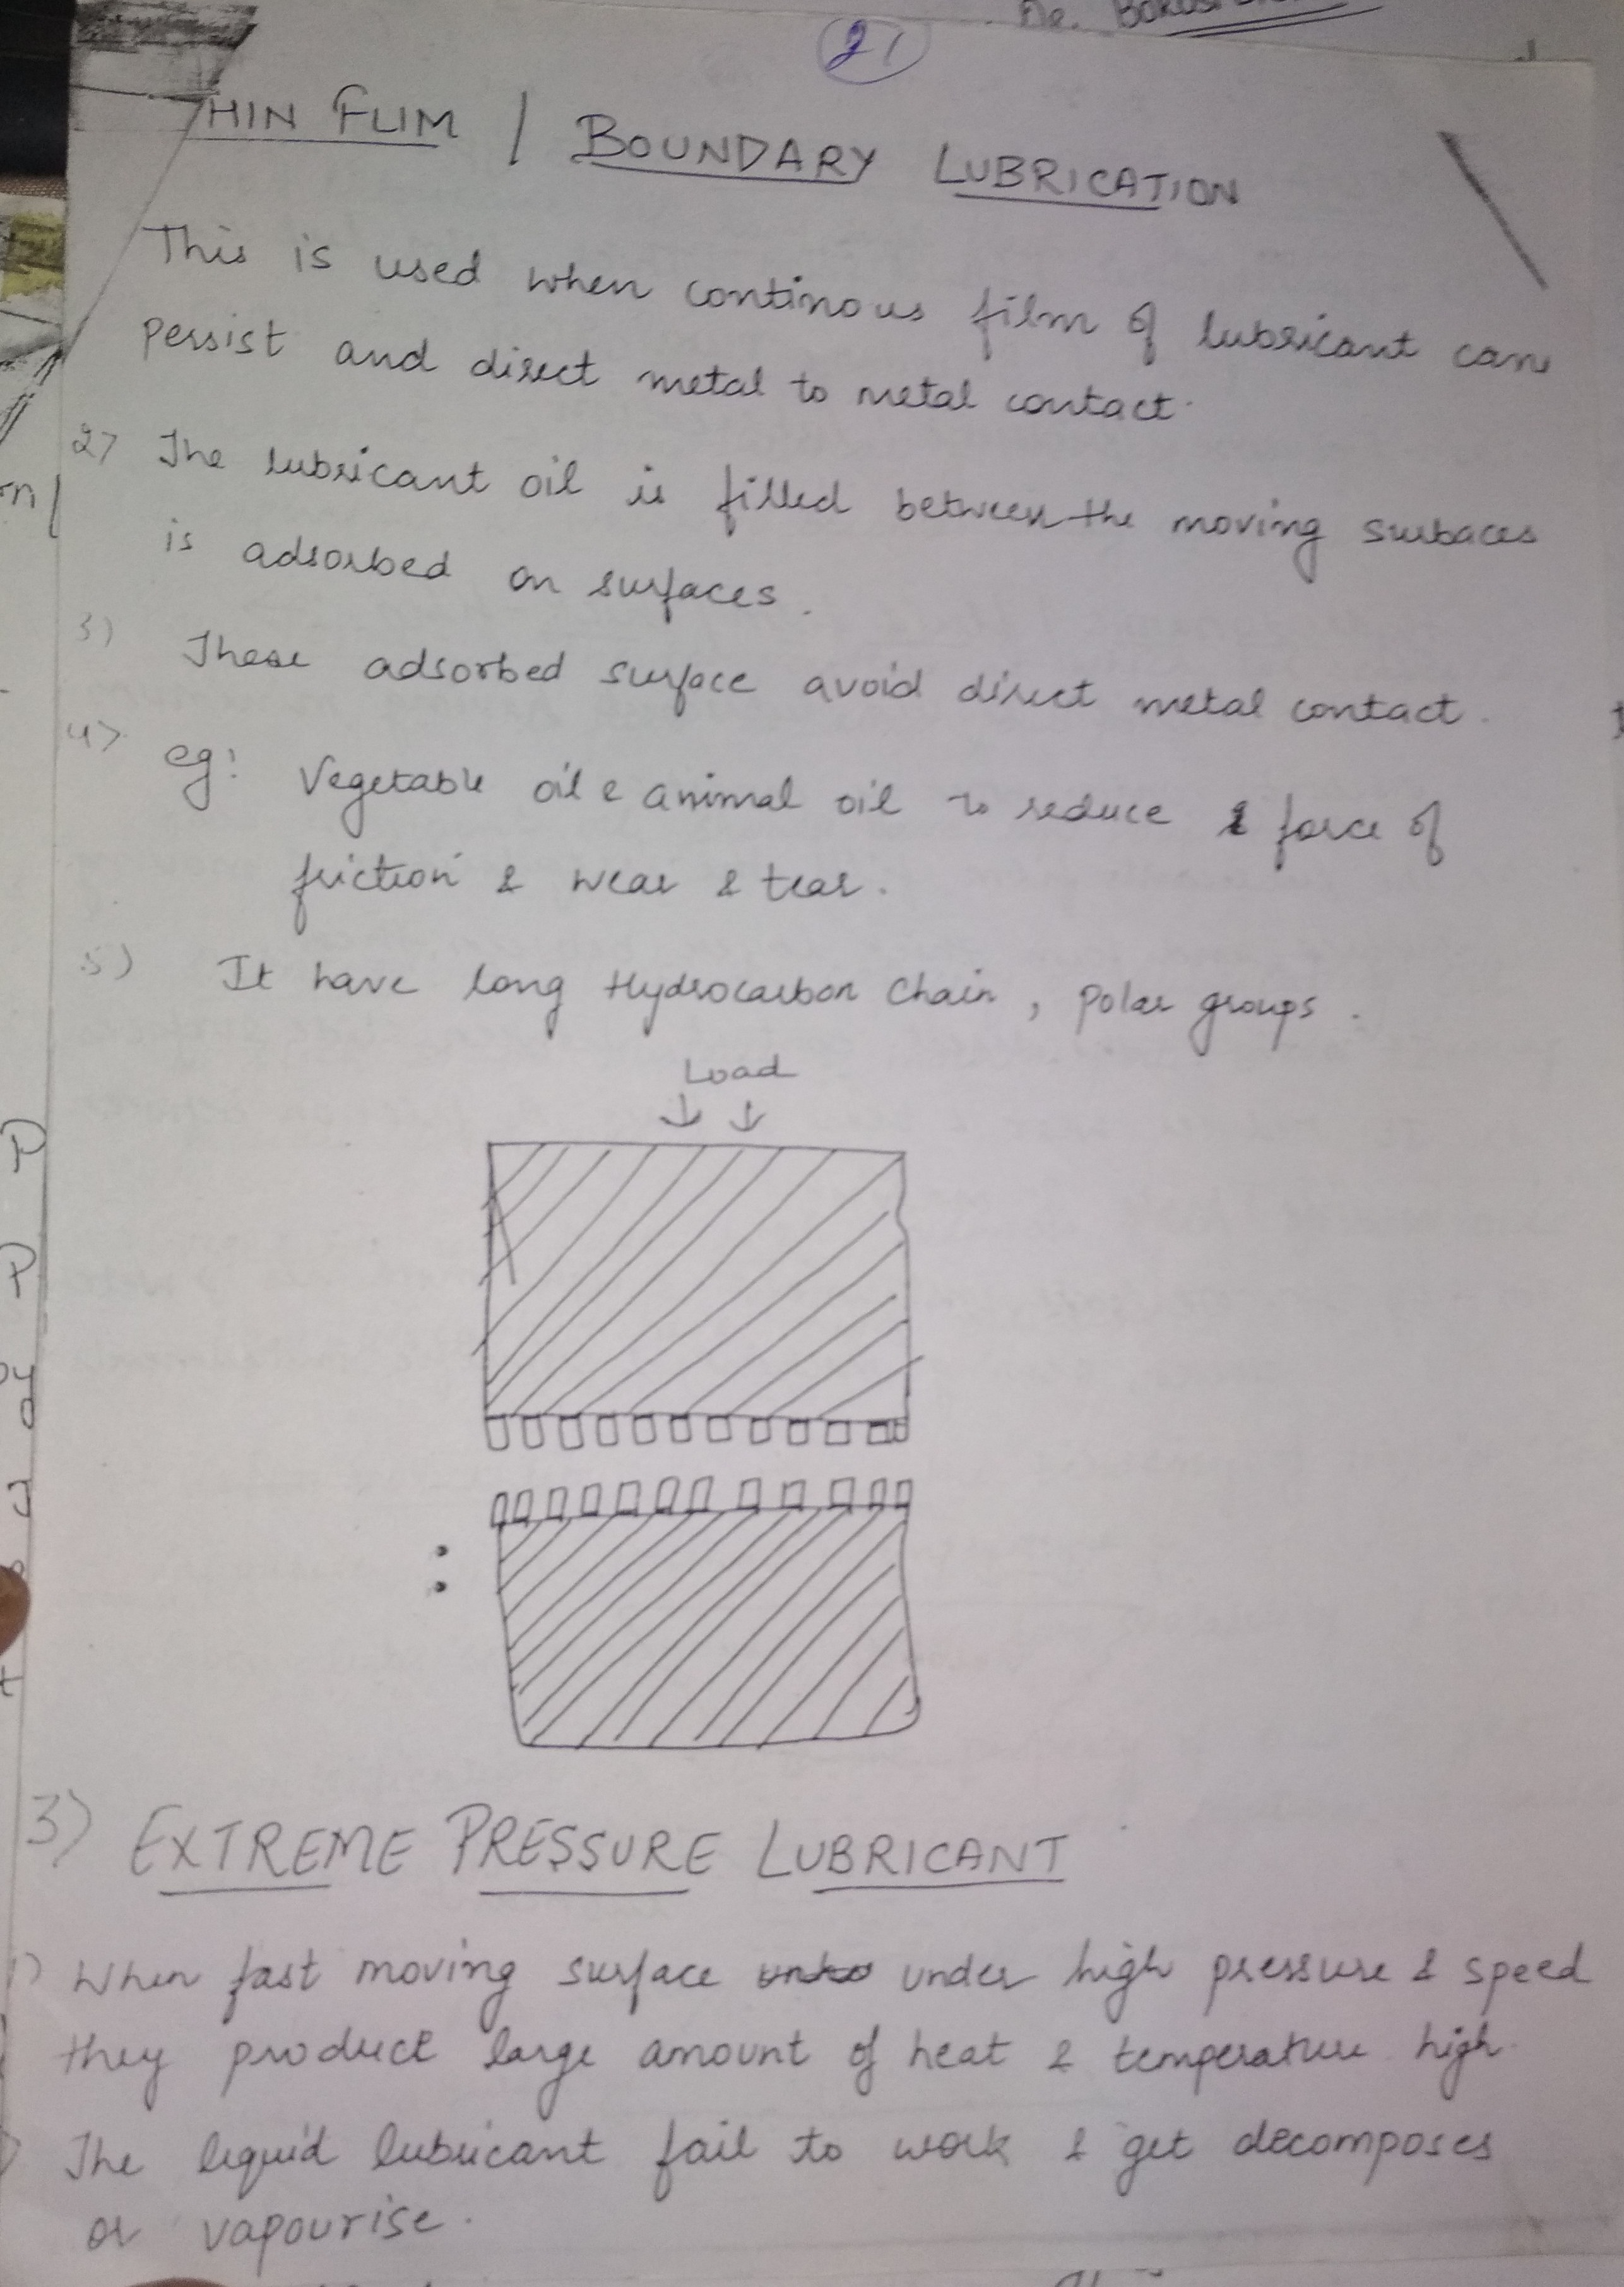 21
THIN FLIM / BOUNDARY LUBRICATION
This is used when continous film of lubricant can
persist and direct metal to metal contact.
2) The lubricant oil is filled between the moving surbaces
is adsorbed on surfaces.
3) These adsorbed surface avoid direct metal contact.
4) eg: Vegetable oil & animal oil to reduce & force of
friction & wear & tear.
5) It have long Hydrocarbon Chain, polar groups.
Load
3) EXTREME PRESSURE LUBRICANT
1) When fast moving surface under high pressure & speed
they product large amount of heat & temperature high.
The liquid lubricant fail to work & get decomposes
or vapourise.